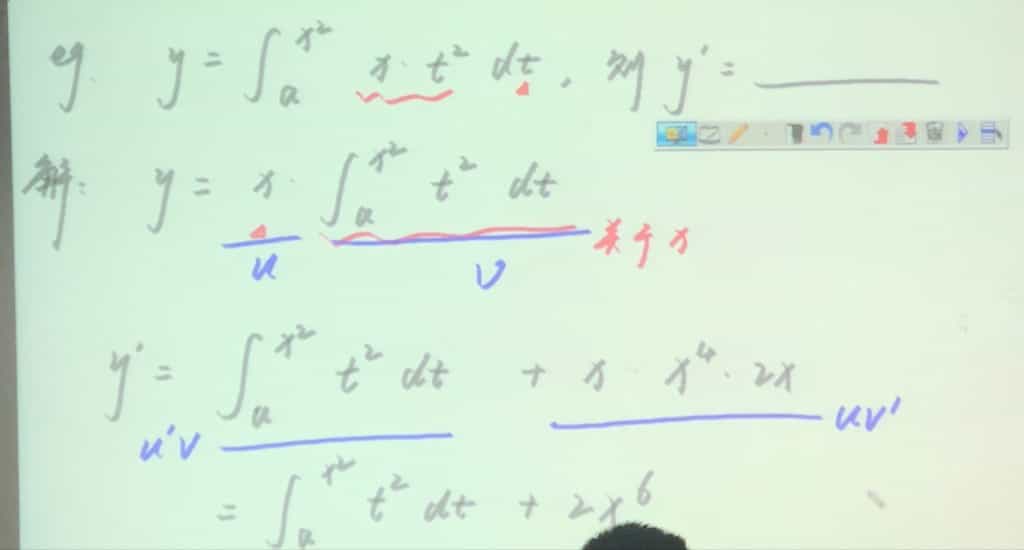 eg. y = ∫ₐ^(x²) x · t² dt, 则 y' = ______
解: y = x · ∫ₐ^(x²) t² dt 关于 x
u v
y' = ∫ₐ^(x²) t² dt + x · x⁴ · 2x
u'v uv'
= ∫ₐ^(x²) t² dt + 2x⁶